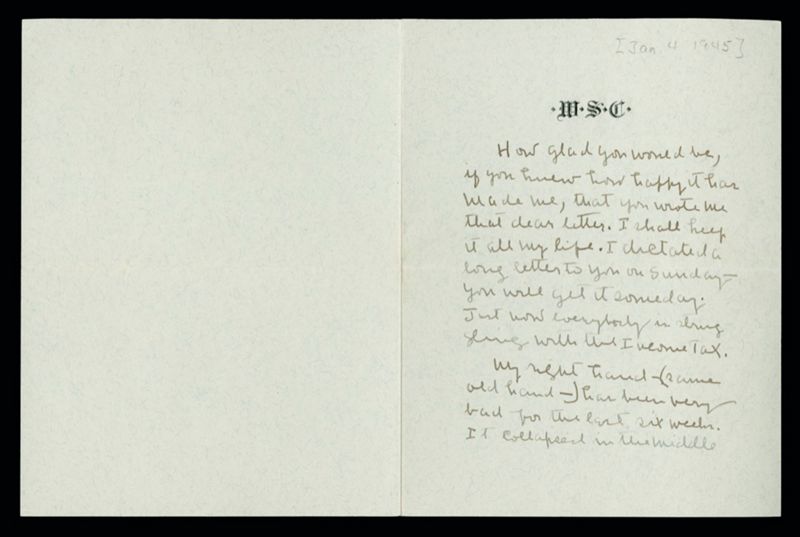 [Jan. 4 1945]
·W·S·C·
How glad you would be,
if you knew how happy it has
made me, that you wrote me
that dear letter. I shall keep
it all my life. I dictated a
long letter to you on Sunday—
you will get it someday.
Just now everybody is strug
gling with the Income Tax.
My right hand—(same
old hand—) has been very
bad for the last six weeks.
It collapsed in the middle